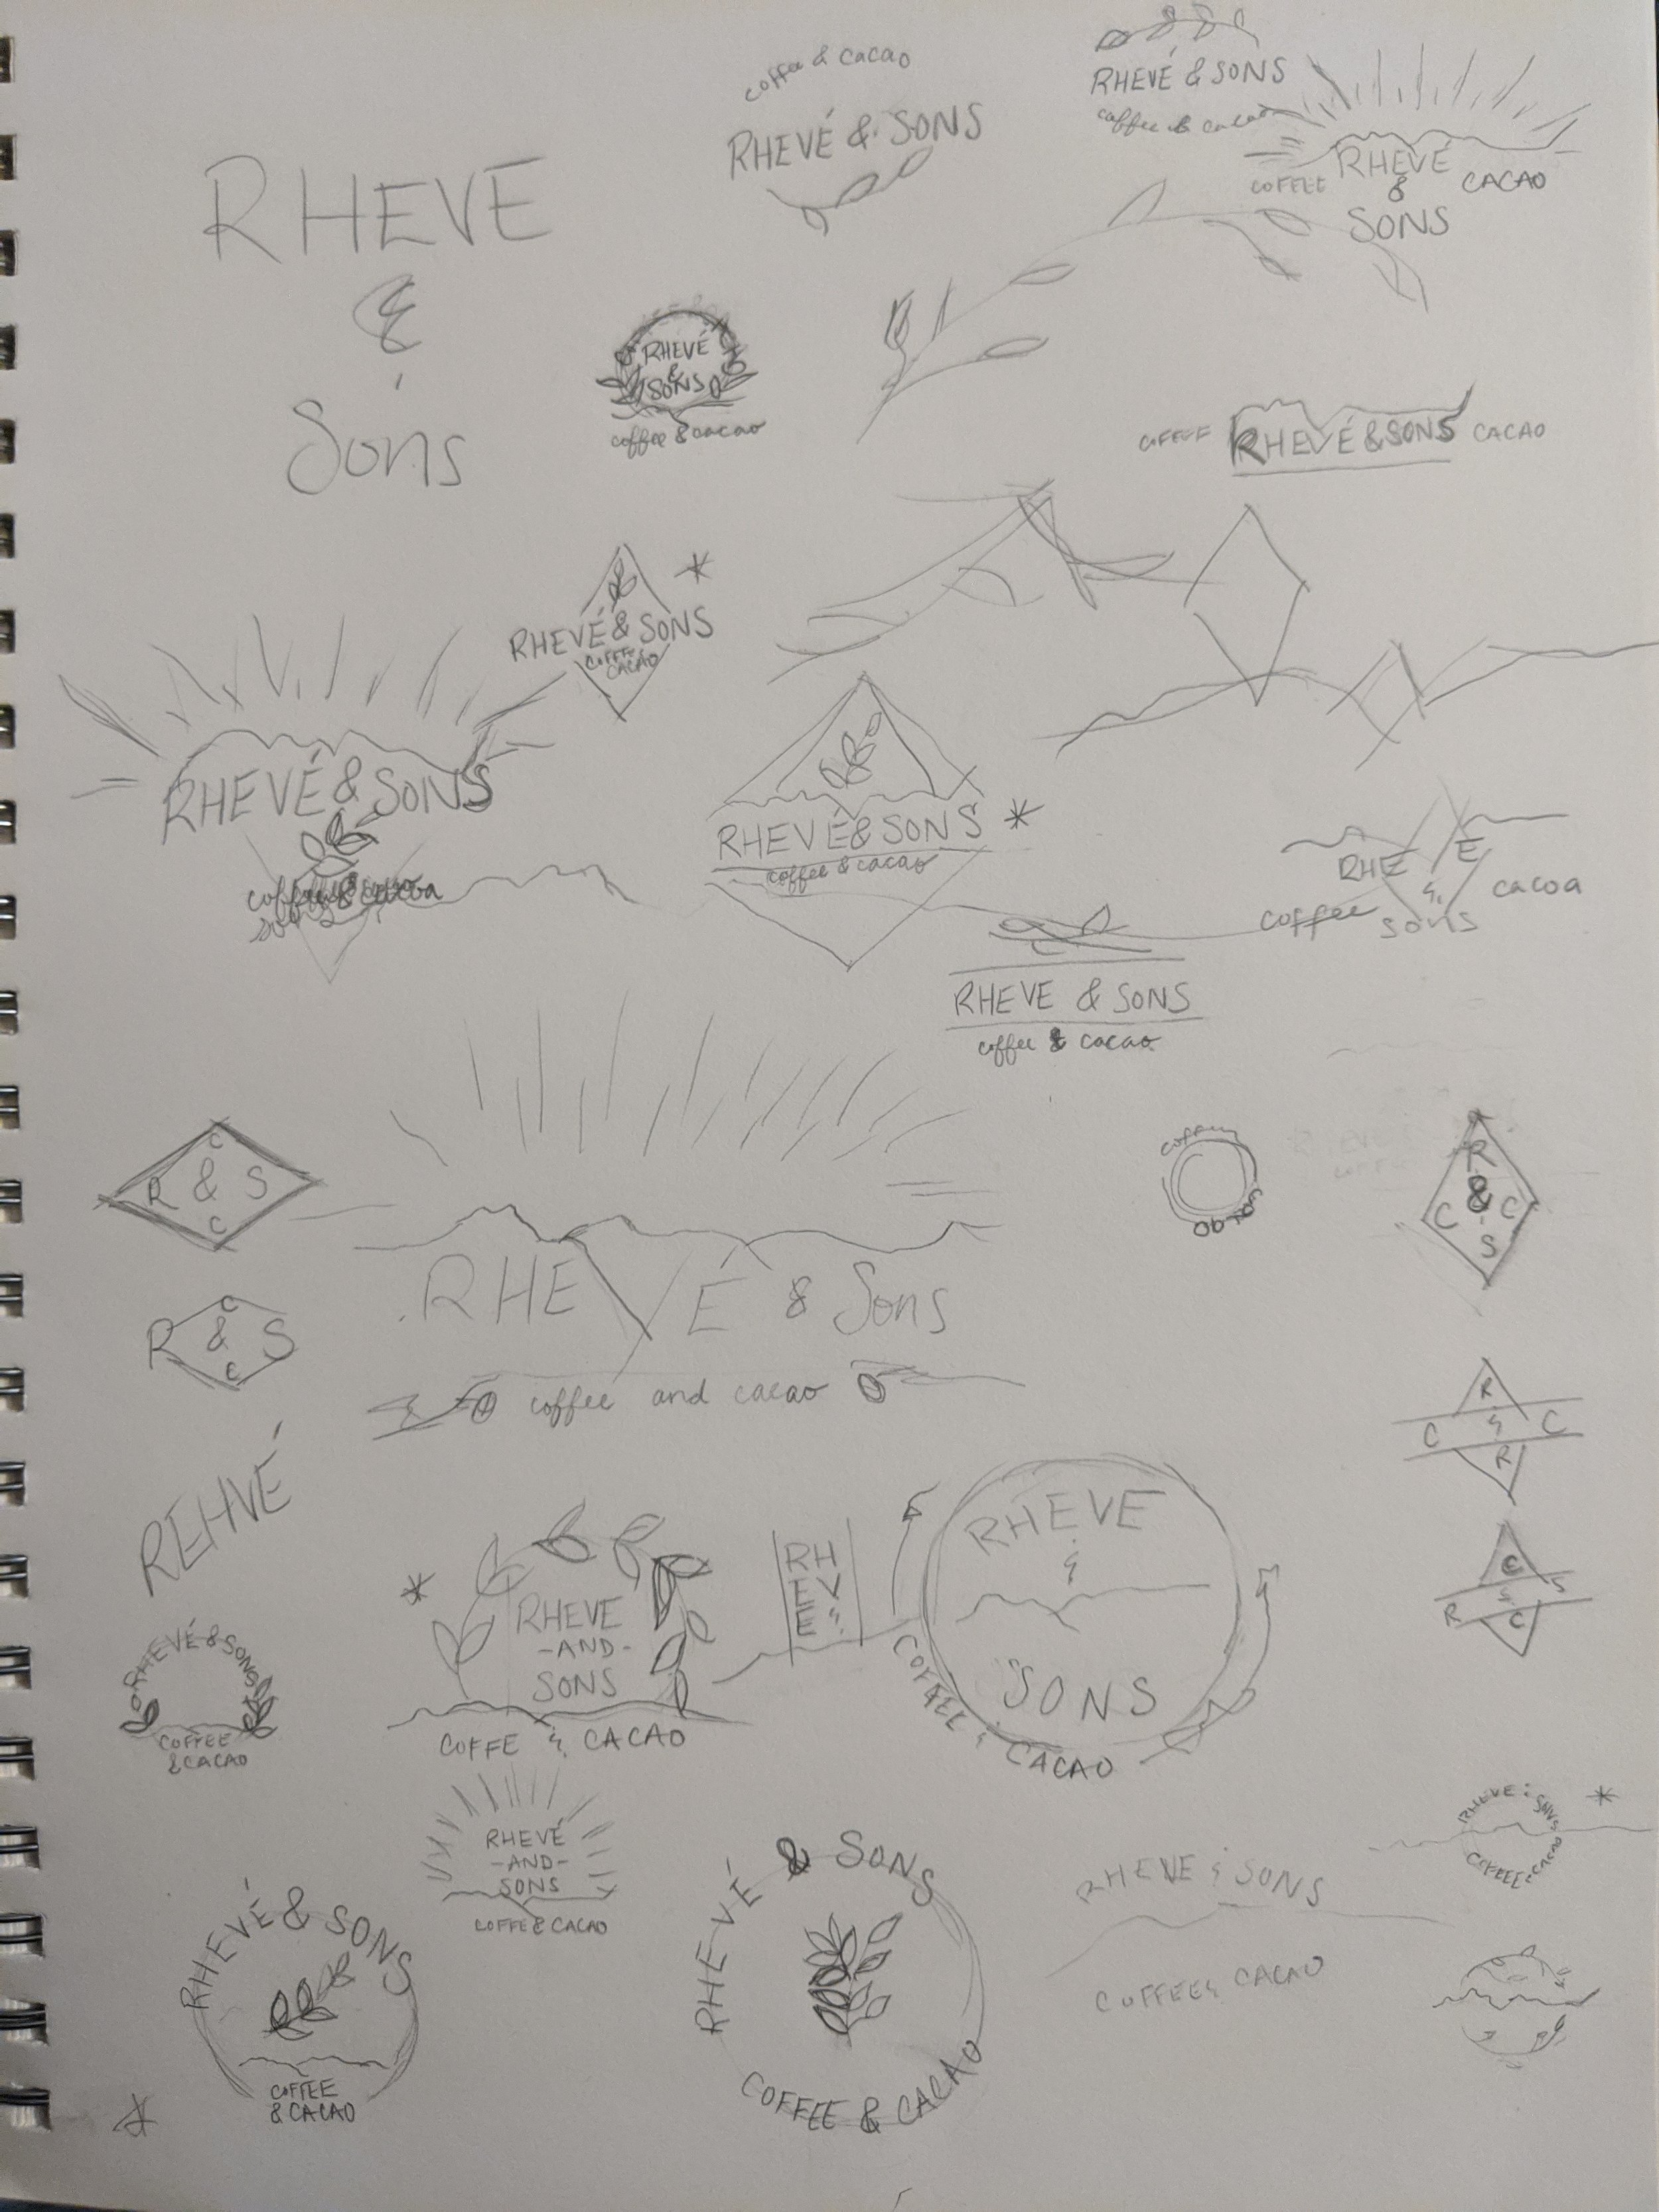 coffee & cacao
RHEVÉ & SONS
RHEVÉ & SONS
coffee & cacao
RHEVÉ
&
SONS
COFFEE
CACAO
RHEVE
&
Sons
RHEVÉ
&
SONS
coffee & cacao
COFFEE
RHEVÉ & SONS
CACAO
RHEVÉ & SONS
COFFE
CACAO
RHEVÉ & SONS
RHEVÉ & SONS
coffee & cacao
RHE E
&
coffee
cacoa
sons
RHEVE & SONS
coffee & cacao
C
R & S
C
C
R & S
C
RHEVÉ & Sons
coffee and cacao
coffee
R
&
C C
S
R
C & C
R
C
R & S
C
REHVÉ
RHEVÉ & SONS
COFFEE
& CACAO
RHEVE
-AND-
SONS
COFFE & CACAO
RH
EV
E &
E
RHEVE
&
SONS
COFFEE & CACAO
RHEVÉ
-AND-
SONS
COFFE & CACAO
RHEVÉ & SONS
COFFEE
& CACAO
RHEVÉ & SONS
COFFEE & CACAO
RHEVE & SONS
COFFEE & CACAO
RHEVE & SONS
COFFEE & CACAO